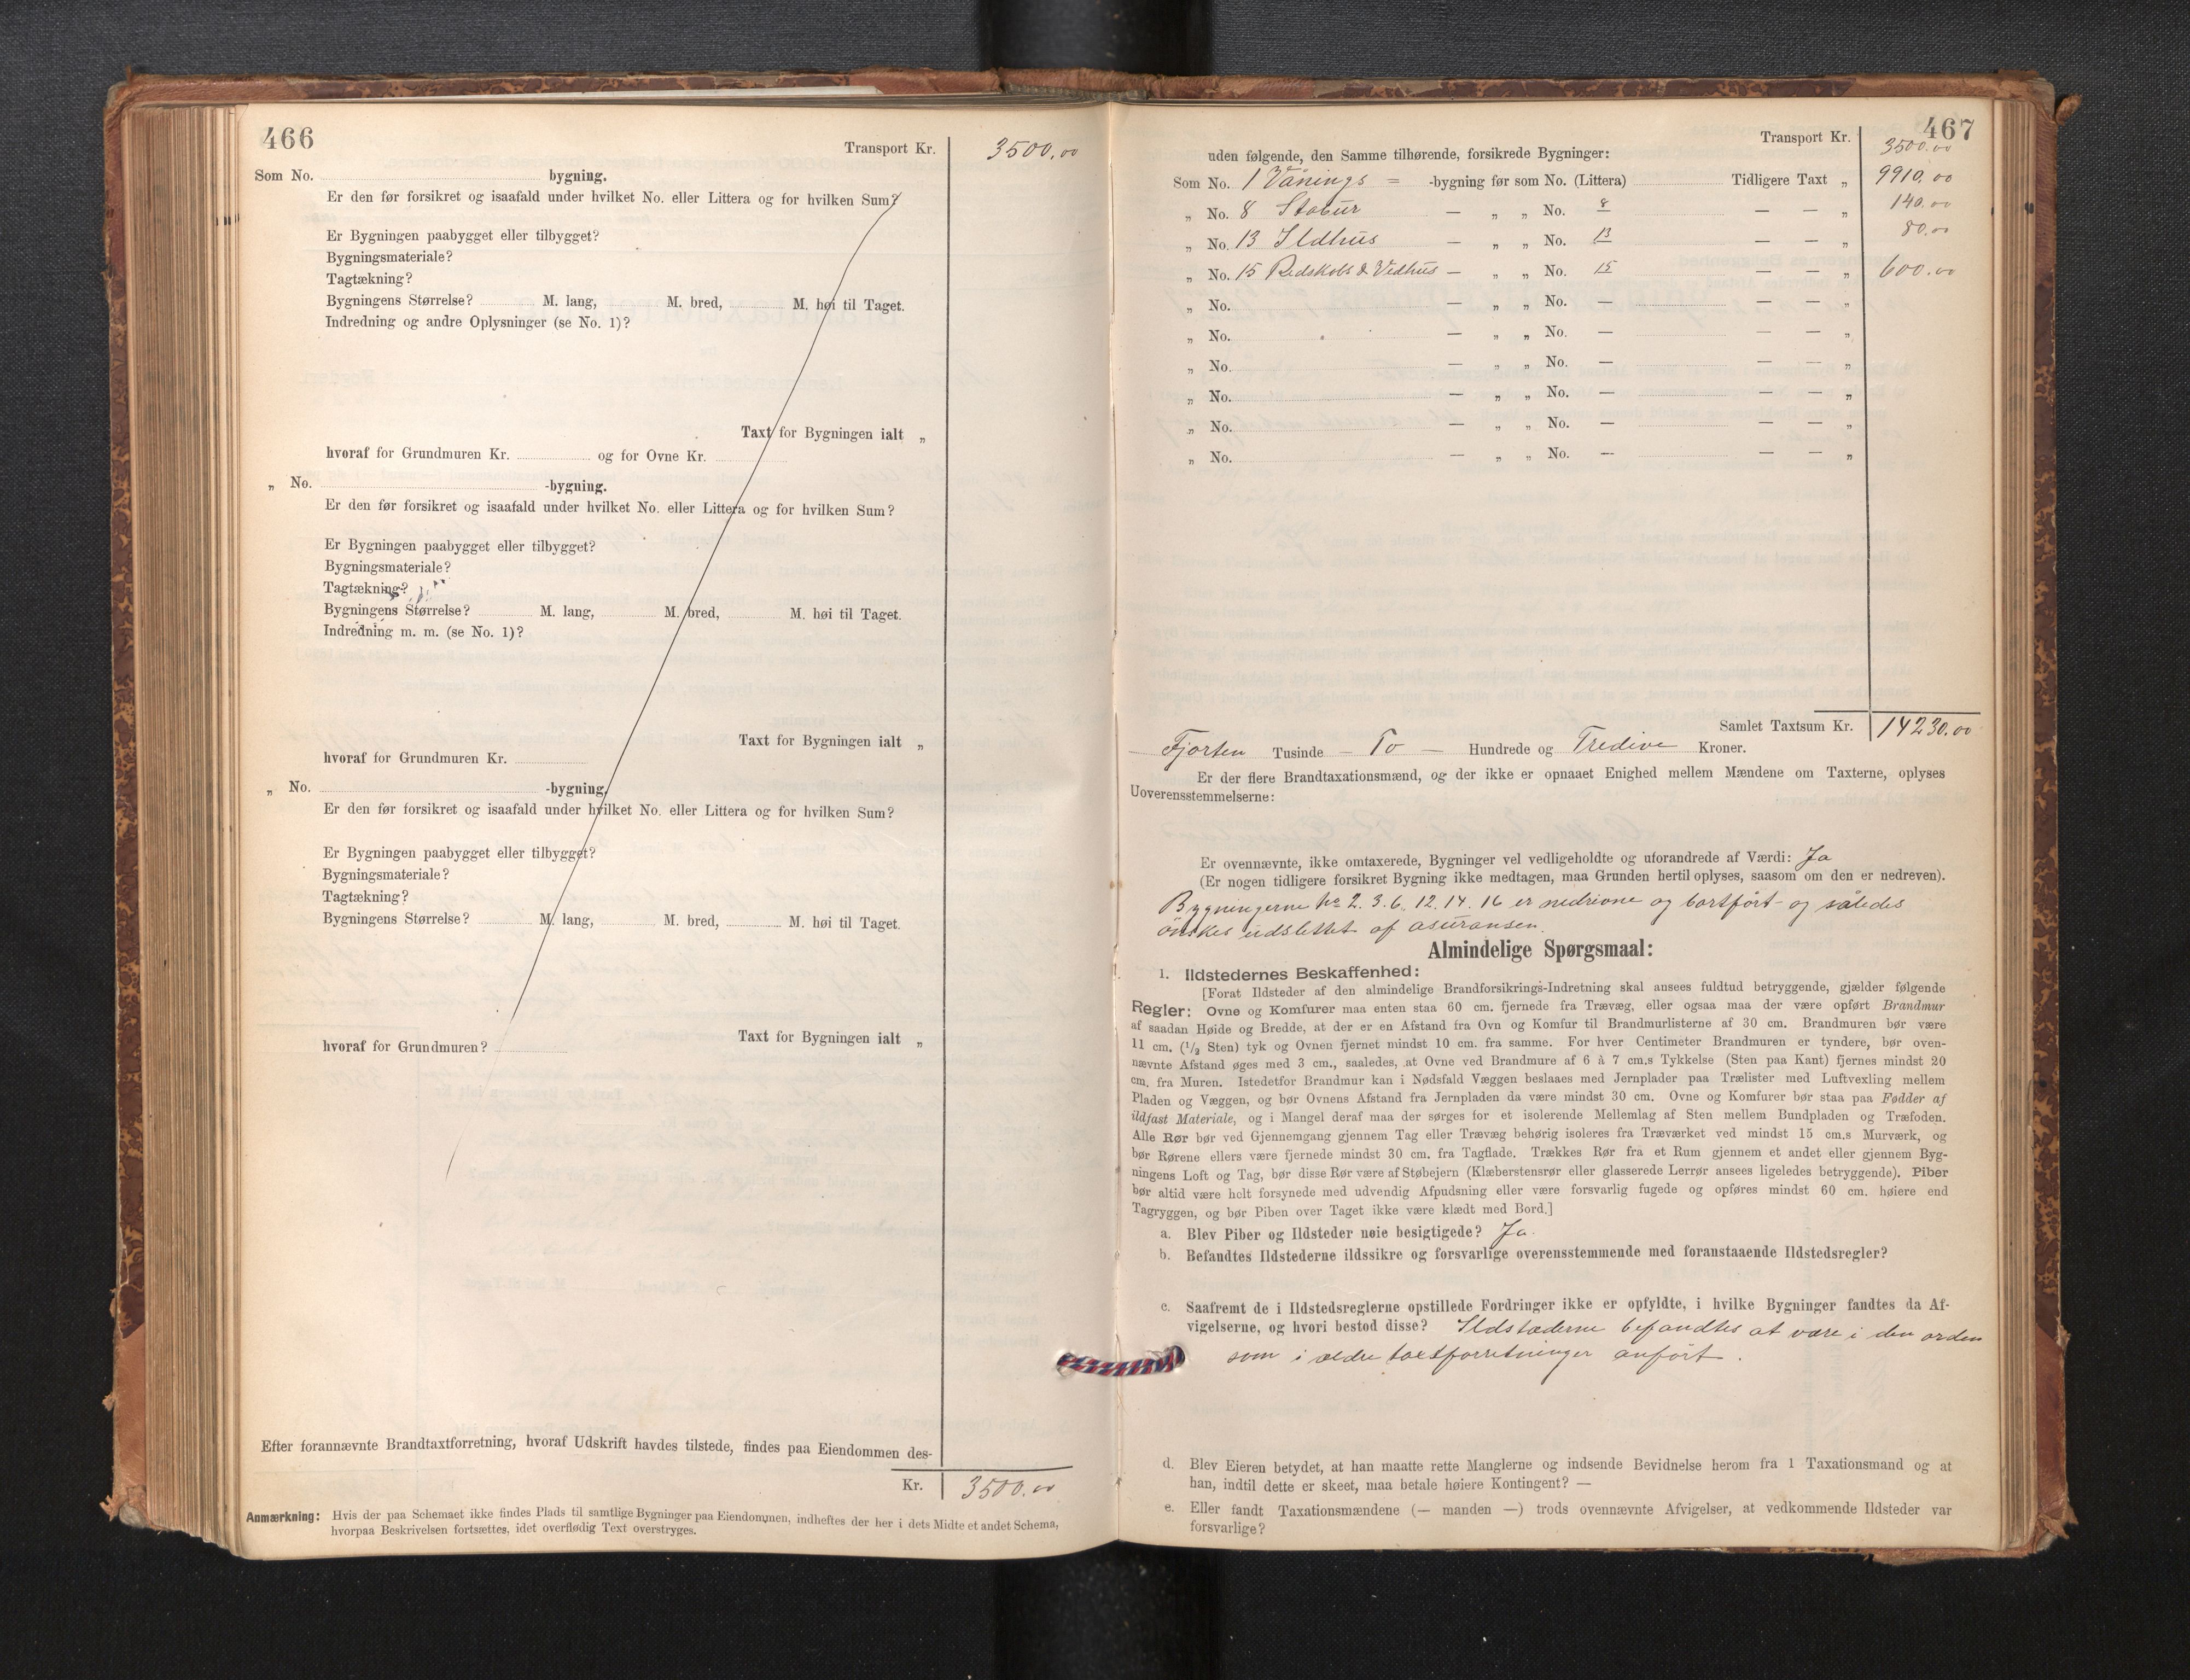 466
Transport Kr. 3500.00
Som No. bygning.
Er den før forsikret og isaafald under hvilket No. eller Littera og for hvilken Sum?
Er Bygningen paabygget eller tilbygget?
Bygningsmateriale?
Tagtækning?
Bygningens Størrelse? M. lang, M. bred, M. høi til Taget.
Indredning og andre Oplysninger (se No. 1)?
Taxt for Bygningen ialt „
hvoraf for Grundmuren Kr. og for Ovne Kr.
„ No. -bygning.
Er den før forsikret og isaafald under hvilket No. eller Littera og for hvilken Sum?
Er Bygningen paabygget eller tilbygget?
Bygningsmateriale?
Tagtækning?
Bygningens Størrelse? M. lang, M. bred, M. høi til Taget.
Indredning m. m. (se No. 1)?
Taxt for Bygningen ialt „
hvoraf for Grundmuren Kr.
„ No. -bygning.
Er den før forsikret og isaafald under hvilket No. eller Littera og for hvilken Sum?
Er Bygningen paabygget eller tilbygget?
Bygningsmateriale?
Tagtækning?
Bygningens Størrelse? M. lang, M. bred, M. høi til Taget.
Taxt for Bygningen ialt „
hvoraf for Grundmuren?
Efter forannævnte Brandtaxtforretning, hvoraf Udskrift havdes tilstede, findes paa Eiendommen des-
Kr. 3500.00
Anmærkning: Hvis der paa Schemaet ikke findes Plads til samtlige Bygninger paa Eiendommen, indheftes der her i dets Midte et andet Schema,
hvorpaa Beskrivelsen fortsættes, idet overflødig Text overstryges.
467
Transport Kr. 3500.00
uden følgende, den Samme tilhørende, forsikrede Bygninger:
Som No. 1 Vånings = -bygning før som No. (Littera) Tidligere Taxt „ 9910.00
„ No. 8 Stabur — „ „ No. 8 — — „ 140.00
„ No. 13 Ildhus — „ „ No. 13 — — „ 80.00
„ No. 15 Redskabs & Vedhus — „ „ No. 15 — — „ 600.00
„ No. — „ „ No. — — — „
„ No. — „ „ No. — — — „
„ No. — „ „ No. — — — „
„ No. — „ „ No. — — — „
„ No. — „ „ No. — — — „
„ No. — „ „ No. — — — „
Samlet Taxtsum Kr. 14230.00
— Fjorten Tusinde — To — Hundrede og Tredive Kroner.
Er der flere Brandtaxationsmænd, og der ikke er opnaaet Enighed mellem Mændene om Taxterne, oplyses
Uoverensstemmelserne:
Er ovennævnte, ikke omtaxerede, Bygninger vel vedligeholdte og uforandrede af Værdi: Ja
(Er nogen tidligere forsikret Bygning ikke medtagen, maa Grunden hertil oplyses, saasom om den er nedreven).
Bygningerne No 2. 3. 6. 12. 14. 16 er nedrivne og bortført og således
önskes udslettet af asuransen.
Almindelige Spørgsmaal:
1. Ildstedernes Beskaffenhed:
[Forat Ildsteder af den almindelige Brandforsikrings-Indretning skal ansees fuldtud betryggende, gjælder følgende
Regler: Ovne og Komfurer maa enten staa 60 cm. fjernede fra Trævæg, eller ogsaa maa der være opført Brandmur
af saadan Høide og Bredde, at der er en Afstand fra Ovn og Komfur til Brandmurlisterne af 30 cm. Brandmuren bør være
11 cm. (1/2 Sten) tyk og Ovnen fjernet mindst 10 cm. fra samme. For hver Centimeter Brandmuren er tyndere, bør oven-
nævnte Afstand øges med 3 cm., saaledes, at Ovne ved Brandmure af 6 à 7 cm.s Tykkelse (Sten paa Kant) fjernes mindst 20
cm. fra Muren. Istedetfor Brandmur kan i Nødsfald Væggen beslaaes med Jernplader paa Trælister med Luftvexling mellem
Pladen og Væggen, og bør Ovnens Afstand fra Jernpladen da være mindst 30 cm. Ovne og Komfurer bør staa paa Fødder af
ildfast Materiale, og i Mangel deraf maa der sørges for et isolerende Mellemlag af Sten mellem Bundpladen og Træfoden.
Alle Rør bør ved Gjennemgang gjennem Tag eller Trævæg behørig isoleres fra Træværket ved mindst 15 cm.s Murværk, og
bør Rørene ellers være fjernede mindst 30 cm. fra Tagflade. Trækkes Rør fra et Rum gjennem et andet eller gjennem Byg-
ningens Loft og Tag, bør disse Rør være af Støbejern (Klæberstensrør eller glasserede Lerrør ansees ligeledes betryggende). Piber
bør altid være helt forsynede med udvendig Afpudsning eller være forsvarlig fugede og opføres mindst 60 cm. høiere end
Tagryggen, og bør Piben over Taget ikke være klædt med Bord.]
a. Blev Piber og Ildsteder nøie besigtigede? Ja.
b. Befandtes Ildstederne ildssikre og forsvarlige overensstemmende med foranstaaende Ildstedsregler?
c. Saafremt de i Ildstedsreglerne opstillede Fordringer ikke er opfyldte, i hvilke Bygninger fandtes da Af-
vigelserne, og hvori bestod disse? Ildstæderne befandtes at være i den orden
som i ældre taxtforretninger anført.
d. Blev Eieren betydet, at han maatte rette Manglerne og indsende Bevidnelse herom fra 1 Taxationsmand og at
han, indtil dette er skeet, maa betale høiere Kontingent? —
e. Eller fandt Taxationsmændene (— manden —) trods ovennævnte Afvigelser, at vedkommende Ildsteder var
forsvarlige?